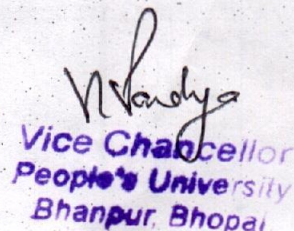 Vice Chancellor
People's University
Bhanpur, Bhopal